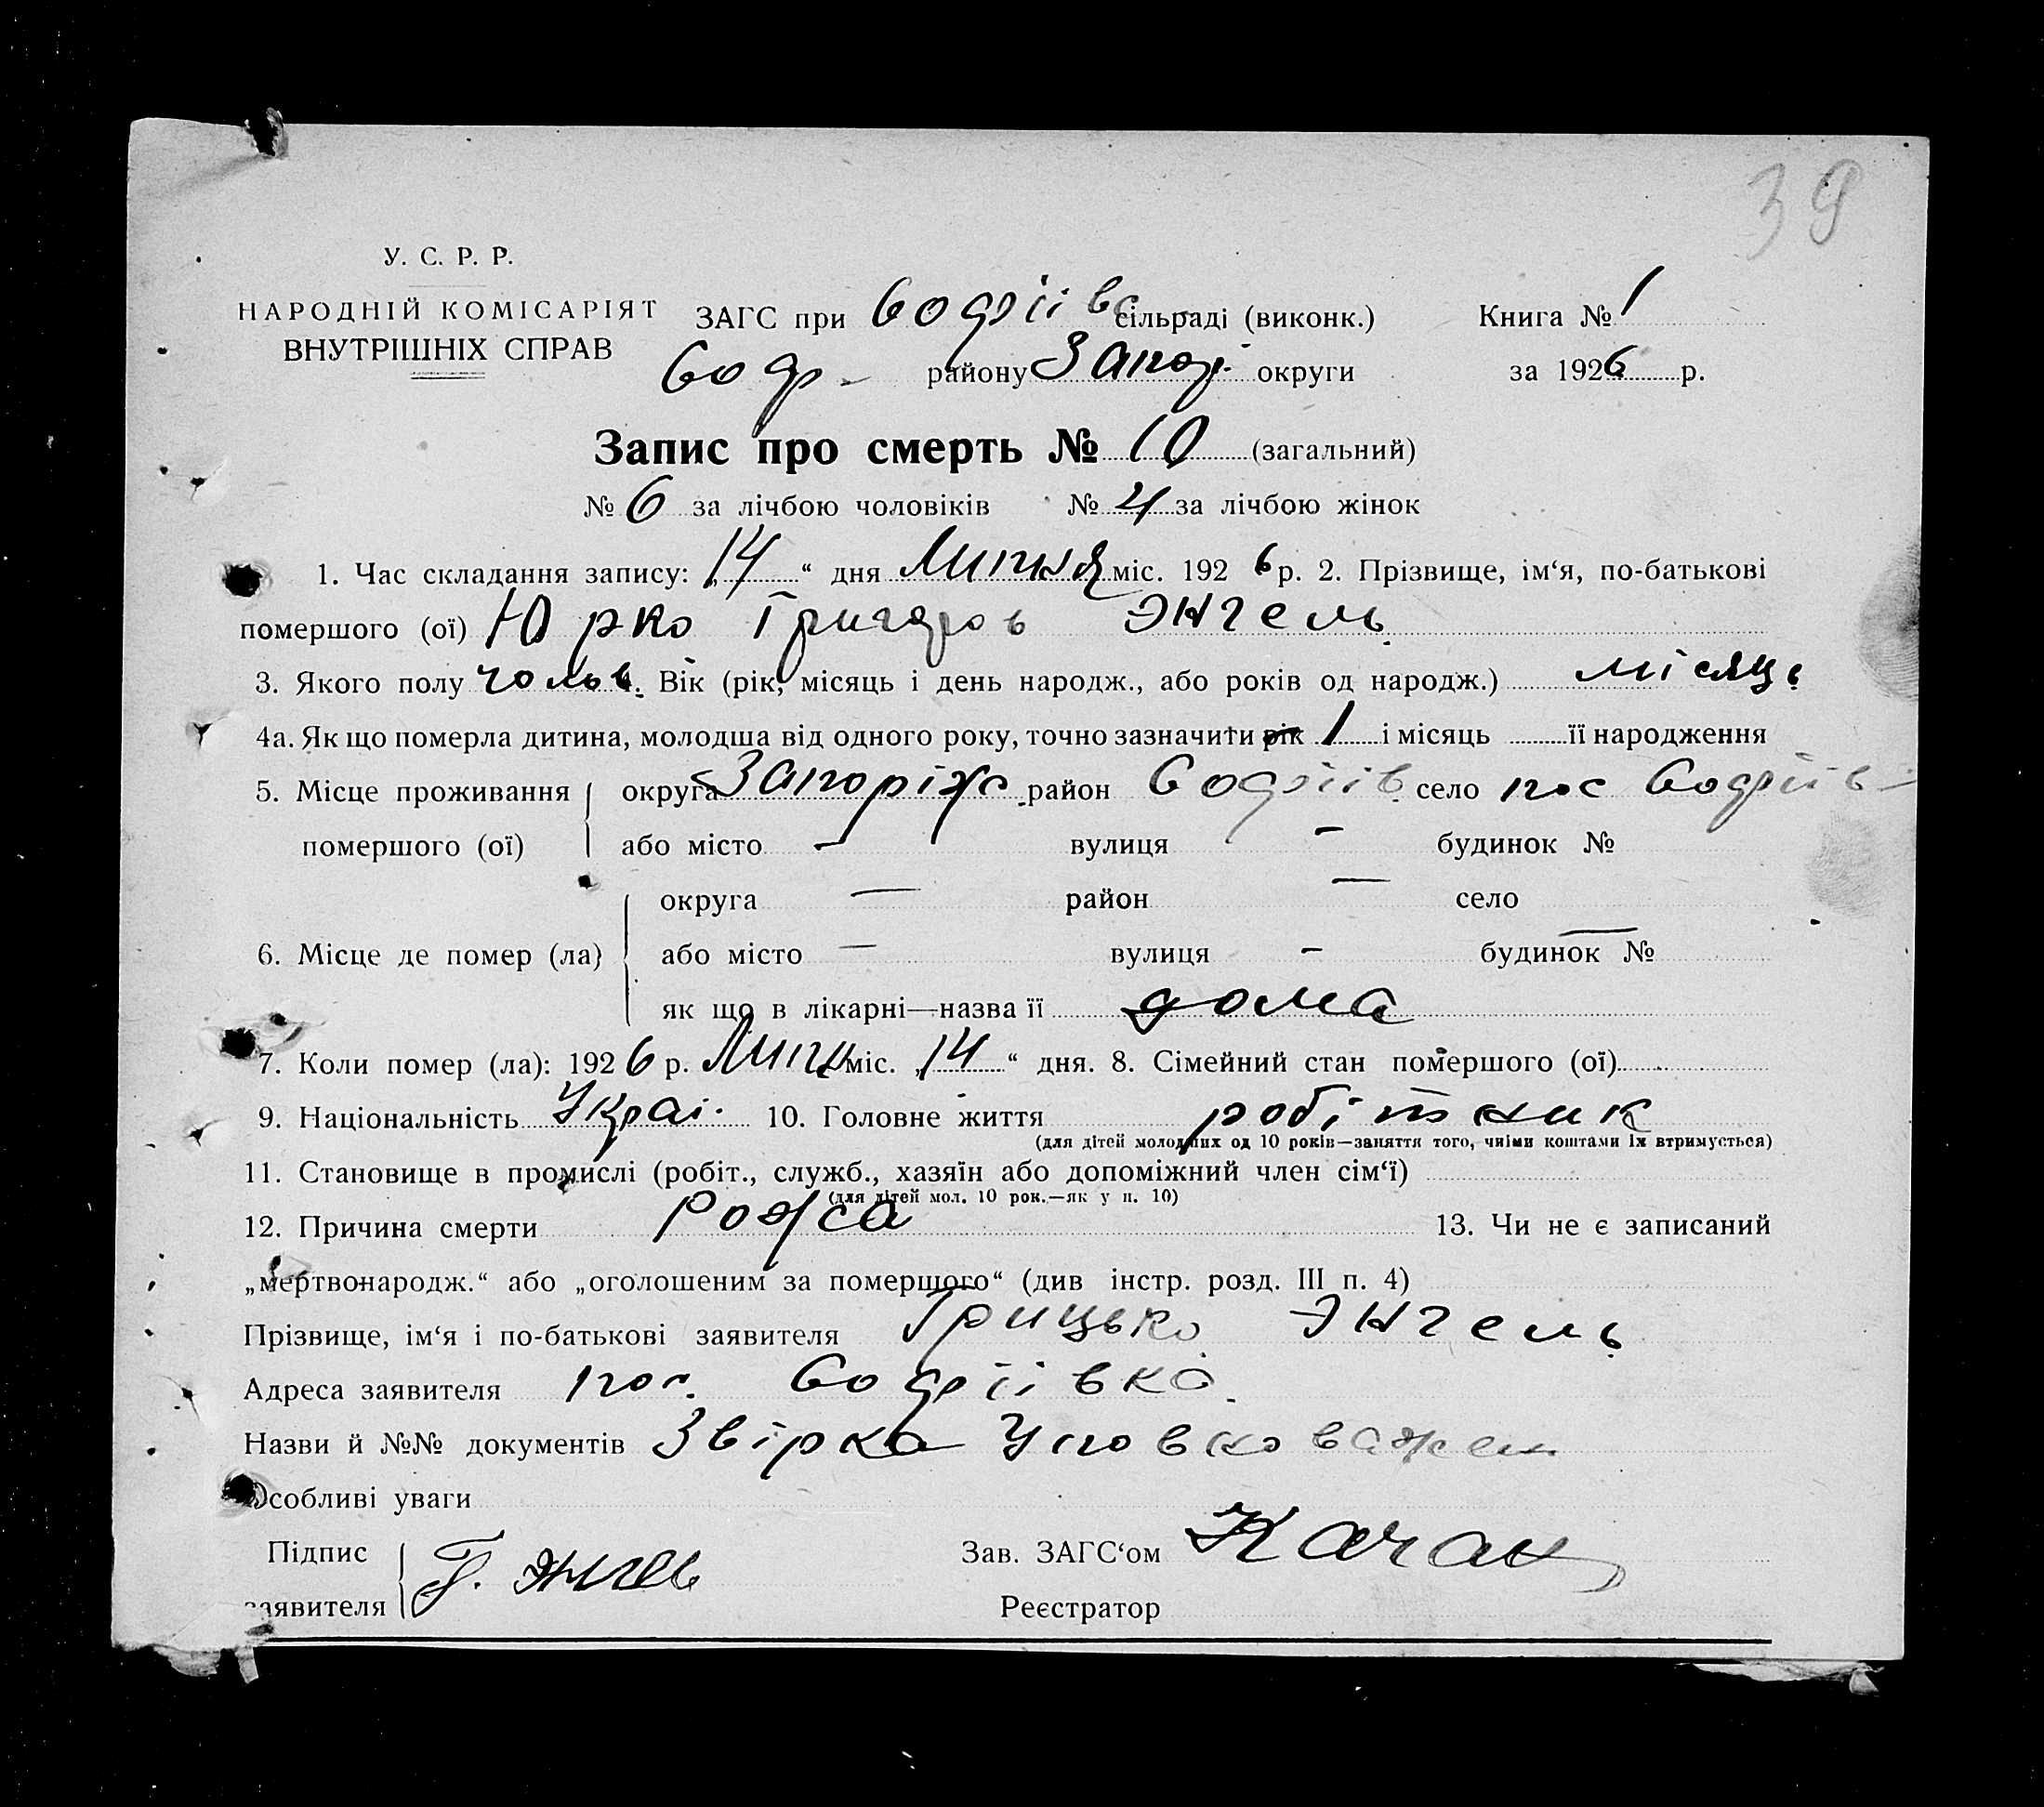 39
У. С. Р. Р.
НАРОДНІЙ КОМІСАРІЯТ
ВНУТРІШНІХ СПРАВ
ЗАГС при Софіївс сільраді (виконк.) Книга № 1
Соф. району Запор. округи за 1926 р.
Запис про смерть № 10 (загальний)
№ 6 за лічбою чоловіків № 4 за лічбою жінок
1. Час складання запису: „14“ дня Липня міс. 1926 р. 2. Прізвище, ім‘я, по-батькові
помершого (ої) Юрко Григоров Энгель
3. Якого полу чолов. Вік (рік, місяць і день народж., або років од народж.) місяць
4а. Як що померла дитина, молодша від одного року, точно зазначити рік 1 і місяць її народження
5. Місце проживання округа Запоріж. район Софіїв. село пос Софіїв-
помершого (ої) або місто — вулиця — будинок №
округа — район — село
6. Місце де помер (ла) або місто — вулиця — будинок № —
як що в лікарні—назва її дома
7. Коли помер (ла): 1926 р. Липн міс. „14“ дня. 8. Сімейний стан помершого (ої)
9. Національність Украі. 10. Головне життя робітник
(для дітей молодших од 10 років—заняття того, чиїми коштами їх втримується)
11. Становище в промислі (робіт., служб., хазяїн або допоміжний член сім‘ї)
(для дітей мол. 10 рок.—як у п. 10)
12. Причина смерти Рожа 13. Чи не є записаний
„мертвонародж.“ або „оголошеним за помершого“ (див інстр. розд. III п. 4)
Прізвище, ім‘я і по-батькові заявителя Грицько Энгель
Адреса заявителя пос. Софіївка.
Назви й №№ документів Звірка Уповноважен
Особливі уваги
Підпис Г. Энгель Зав. ЗАГС‘ом Качан
заявителя Реєстратор